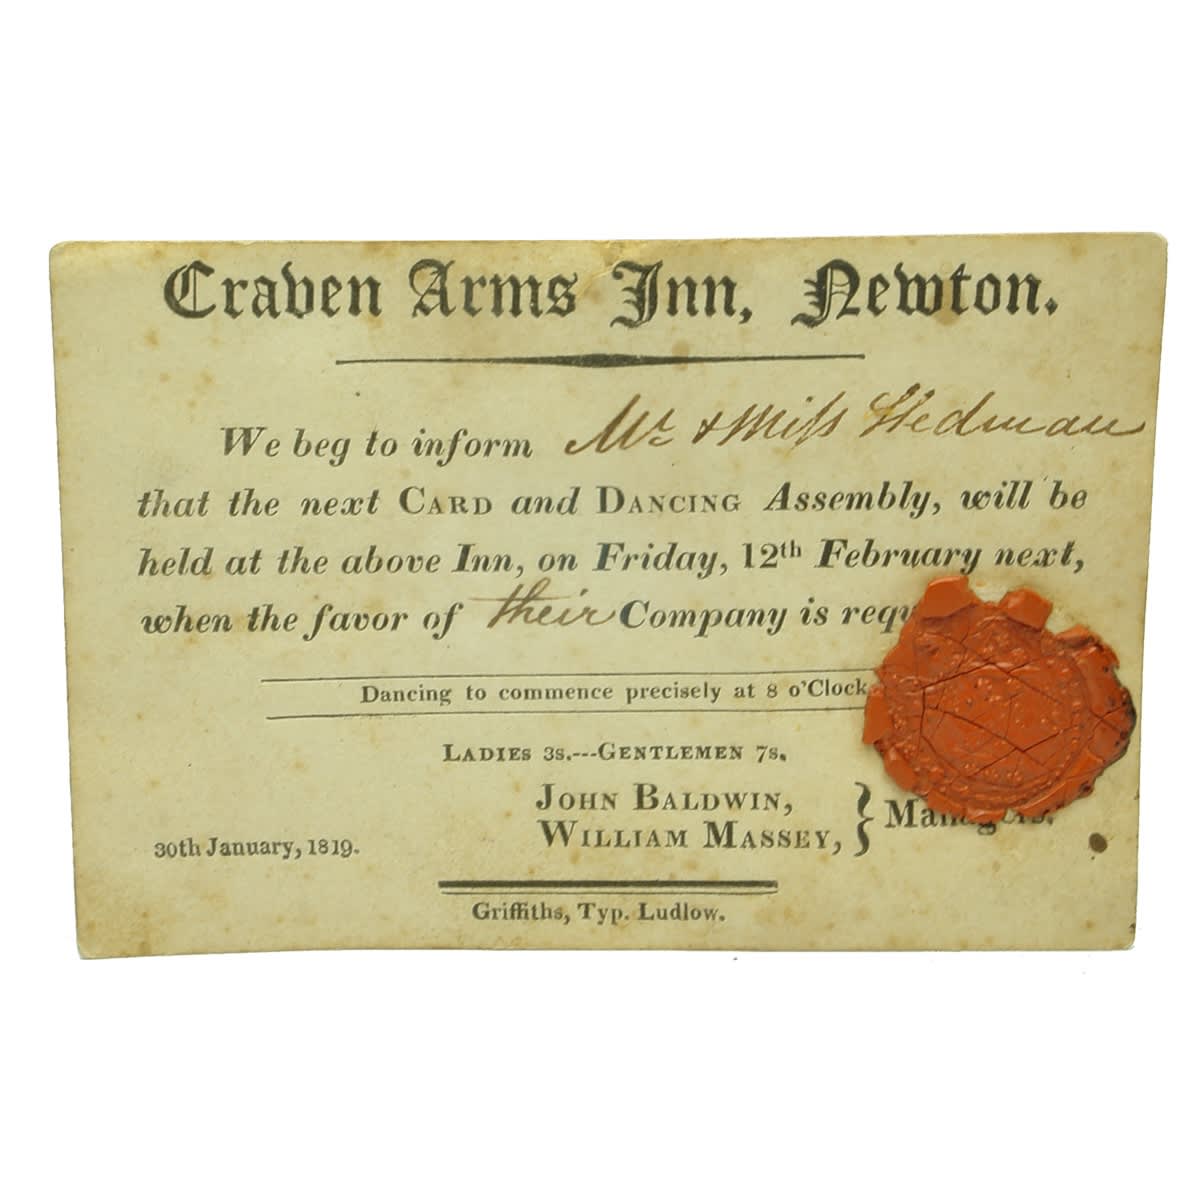 Craven Arms Inn, Newton.
We beg to inform Mr. & Miss Stedman
that the next CARD and DANCING Assembly, will be
held at the above Inn, on Friday, 12th February next,
when the favor of their Company is
Dancing to commence precisely at 8 o'Clock
LADIES 3s.---GENTLEMEN 7s.
JOHN BALDWIN,
WILLIAM MASSEY, } Managers.
30th January, 1819.
Griffiths, Typ. Ludlow.